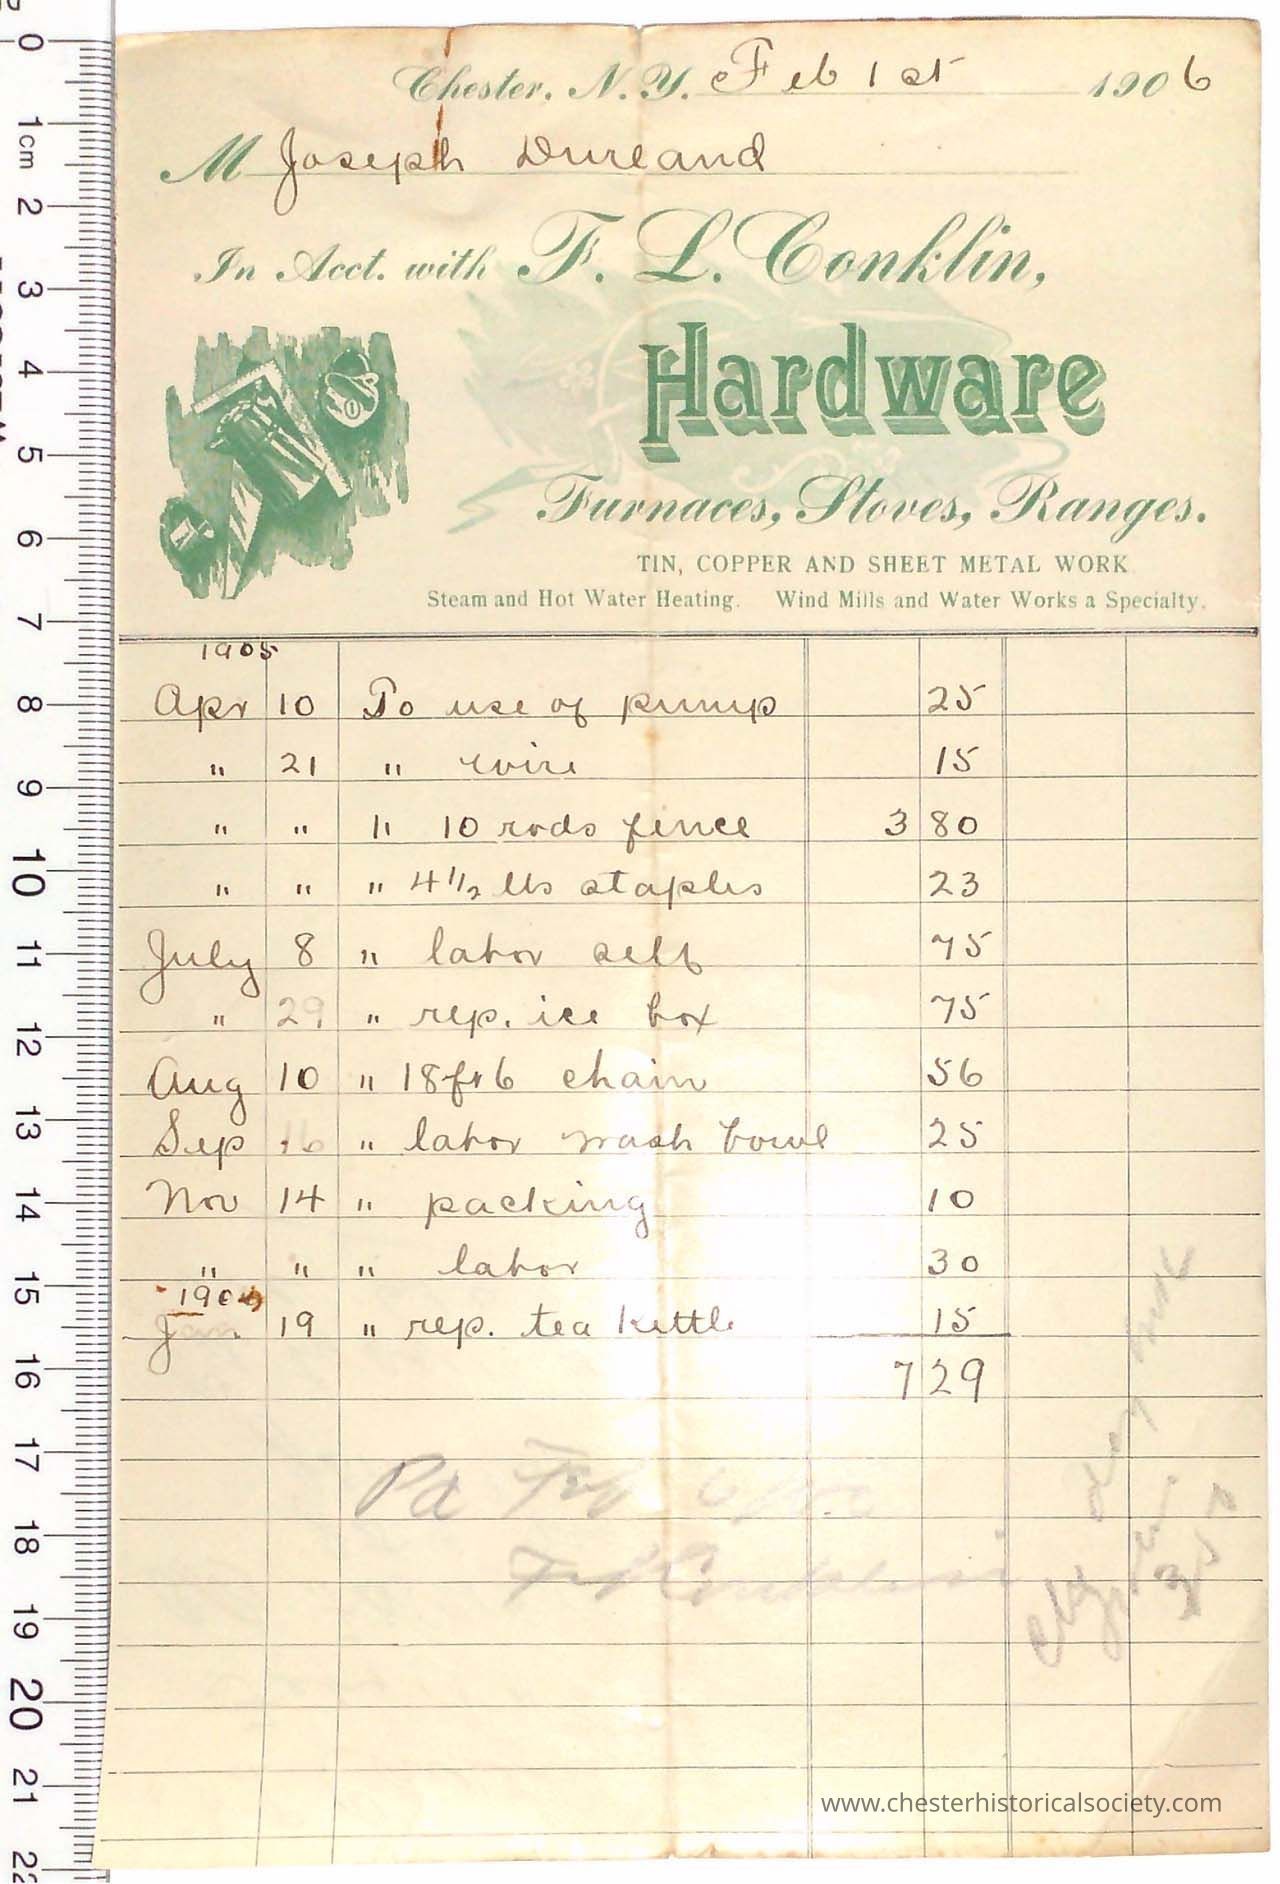 Chester, N. Y. Feb 1st 1906
M Joseph Durland
In Acct. with F. L. Conklin,
Hardware
Furnaces, Stoves, Ranges.
TIN, COPPER AND SHEET METAL WORK
Steam and Hot Water Heating. Wind Mills and Water Works a Specialty.
1905
Apr 10 To use of pump 25
" 21 " wire 15
" " " 10 rods fence 3 80
" " " 4 1/2 lbs staples 23
July 8 " labor self 75
" 29 " rep. ice box 75
Aug 10 " 18 ft 6 chain 56
Sep 16 " labor wash bowl 25
Nov 14 " packing 10
" " " labor 30
1906
Jan 19 " rep. tea kettle 15
7 29
Pd
0
1cm
2
3
4
5
6
7
8
9
10
11
12
13
14
15
16
17
18
19
20
21
22
www.chesterhistoricalsociety.com